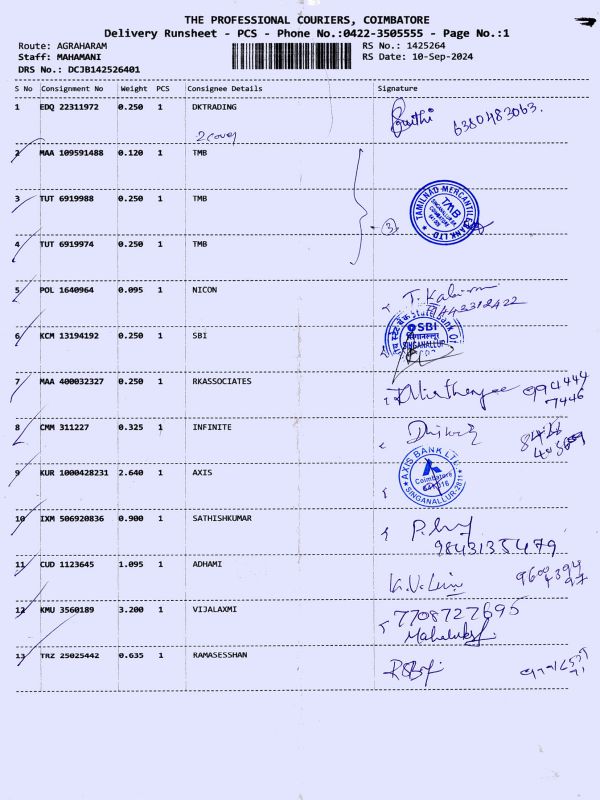 THE PROFESSIONAL COURIERS, COIMBATORE
Delivery Runsheet - PCS - Phone No.:0422-3505555 - Page No.:1
Route: AGRAHARAM RS No.: 1425264
Staff: MAHAMANI RS Date: 10-Sep-2024
DRS No.: DCJB142526401
S No Consignment No Weight PCS Consignee Details Signature
1 EDQ 22311972 0.250 1 DKTRADING
6380483063.
2 cover
2 MAA 109591488 0.120 1 TMB
3 TUT 6919988 0.250 1 TMB
TAMILNAD MERCANTILE BANK LTD
TMB
3
4 TUT 6919974 0.250 1 TMB
5 POL 1640964 0.095 1 NICON
6 KCM 13194192 0.250 1 SBI
State Bank Of
SBI
SINGANALLUR
7 MAA 400032327 0.250 1 RKASSOCIATES
994444
7446
8 CMM 311227 0.325 1 INFINITE
9 KUR 1000428231 2.640 1 AXIS
AXIS BANK LTD.
Coimbatore
SINGANALLUR-2811
10 IXM 506920836 0.900 1 SATHISHKUMAR
9843135479
11 CUD 1123645 1.095 1 ADHAMI
12 KMU 3560189 3.200 1 VIJALAXMI
7708727695
13 TRZ 25025442 0.635 1 RAMASESSHAN